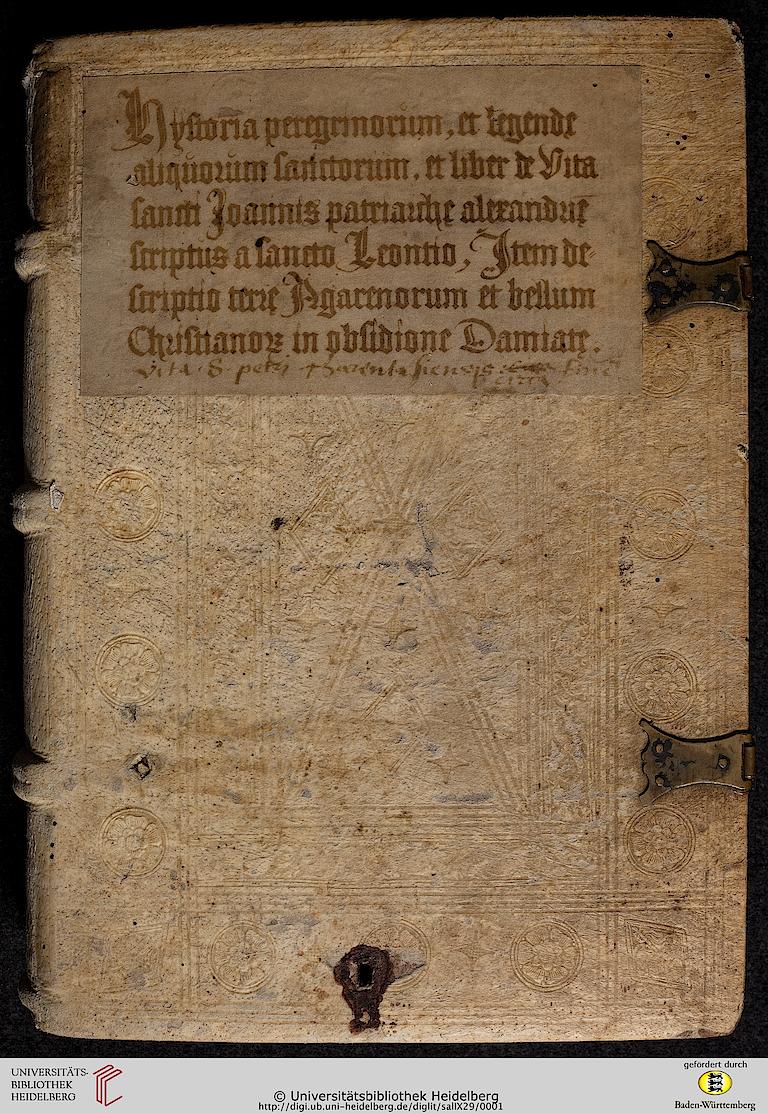 Hystoria peregrinorum, et legende
aliquorum sanctorum, et liber de Vita
sancti Joannis patriarchę alexandrię
scriptus a sancto Leontio, Item de-
scriptio terrę Agarenorum et bellum
Christianoꝝ in obsidione Damiatę.
Vita S petri
UNIVERSITÄTS-
BIBLIOTHEK
HEIDELBERG
© Universitätsbibliothek Heidelberg
http://digi.ub.uni-heidelberg.de/diglit/salIX29/0001
gefördert durch
Baden-Württemberg